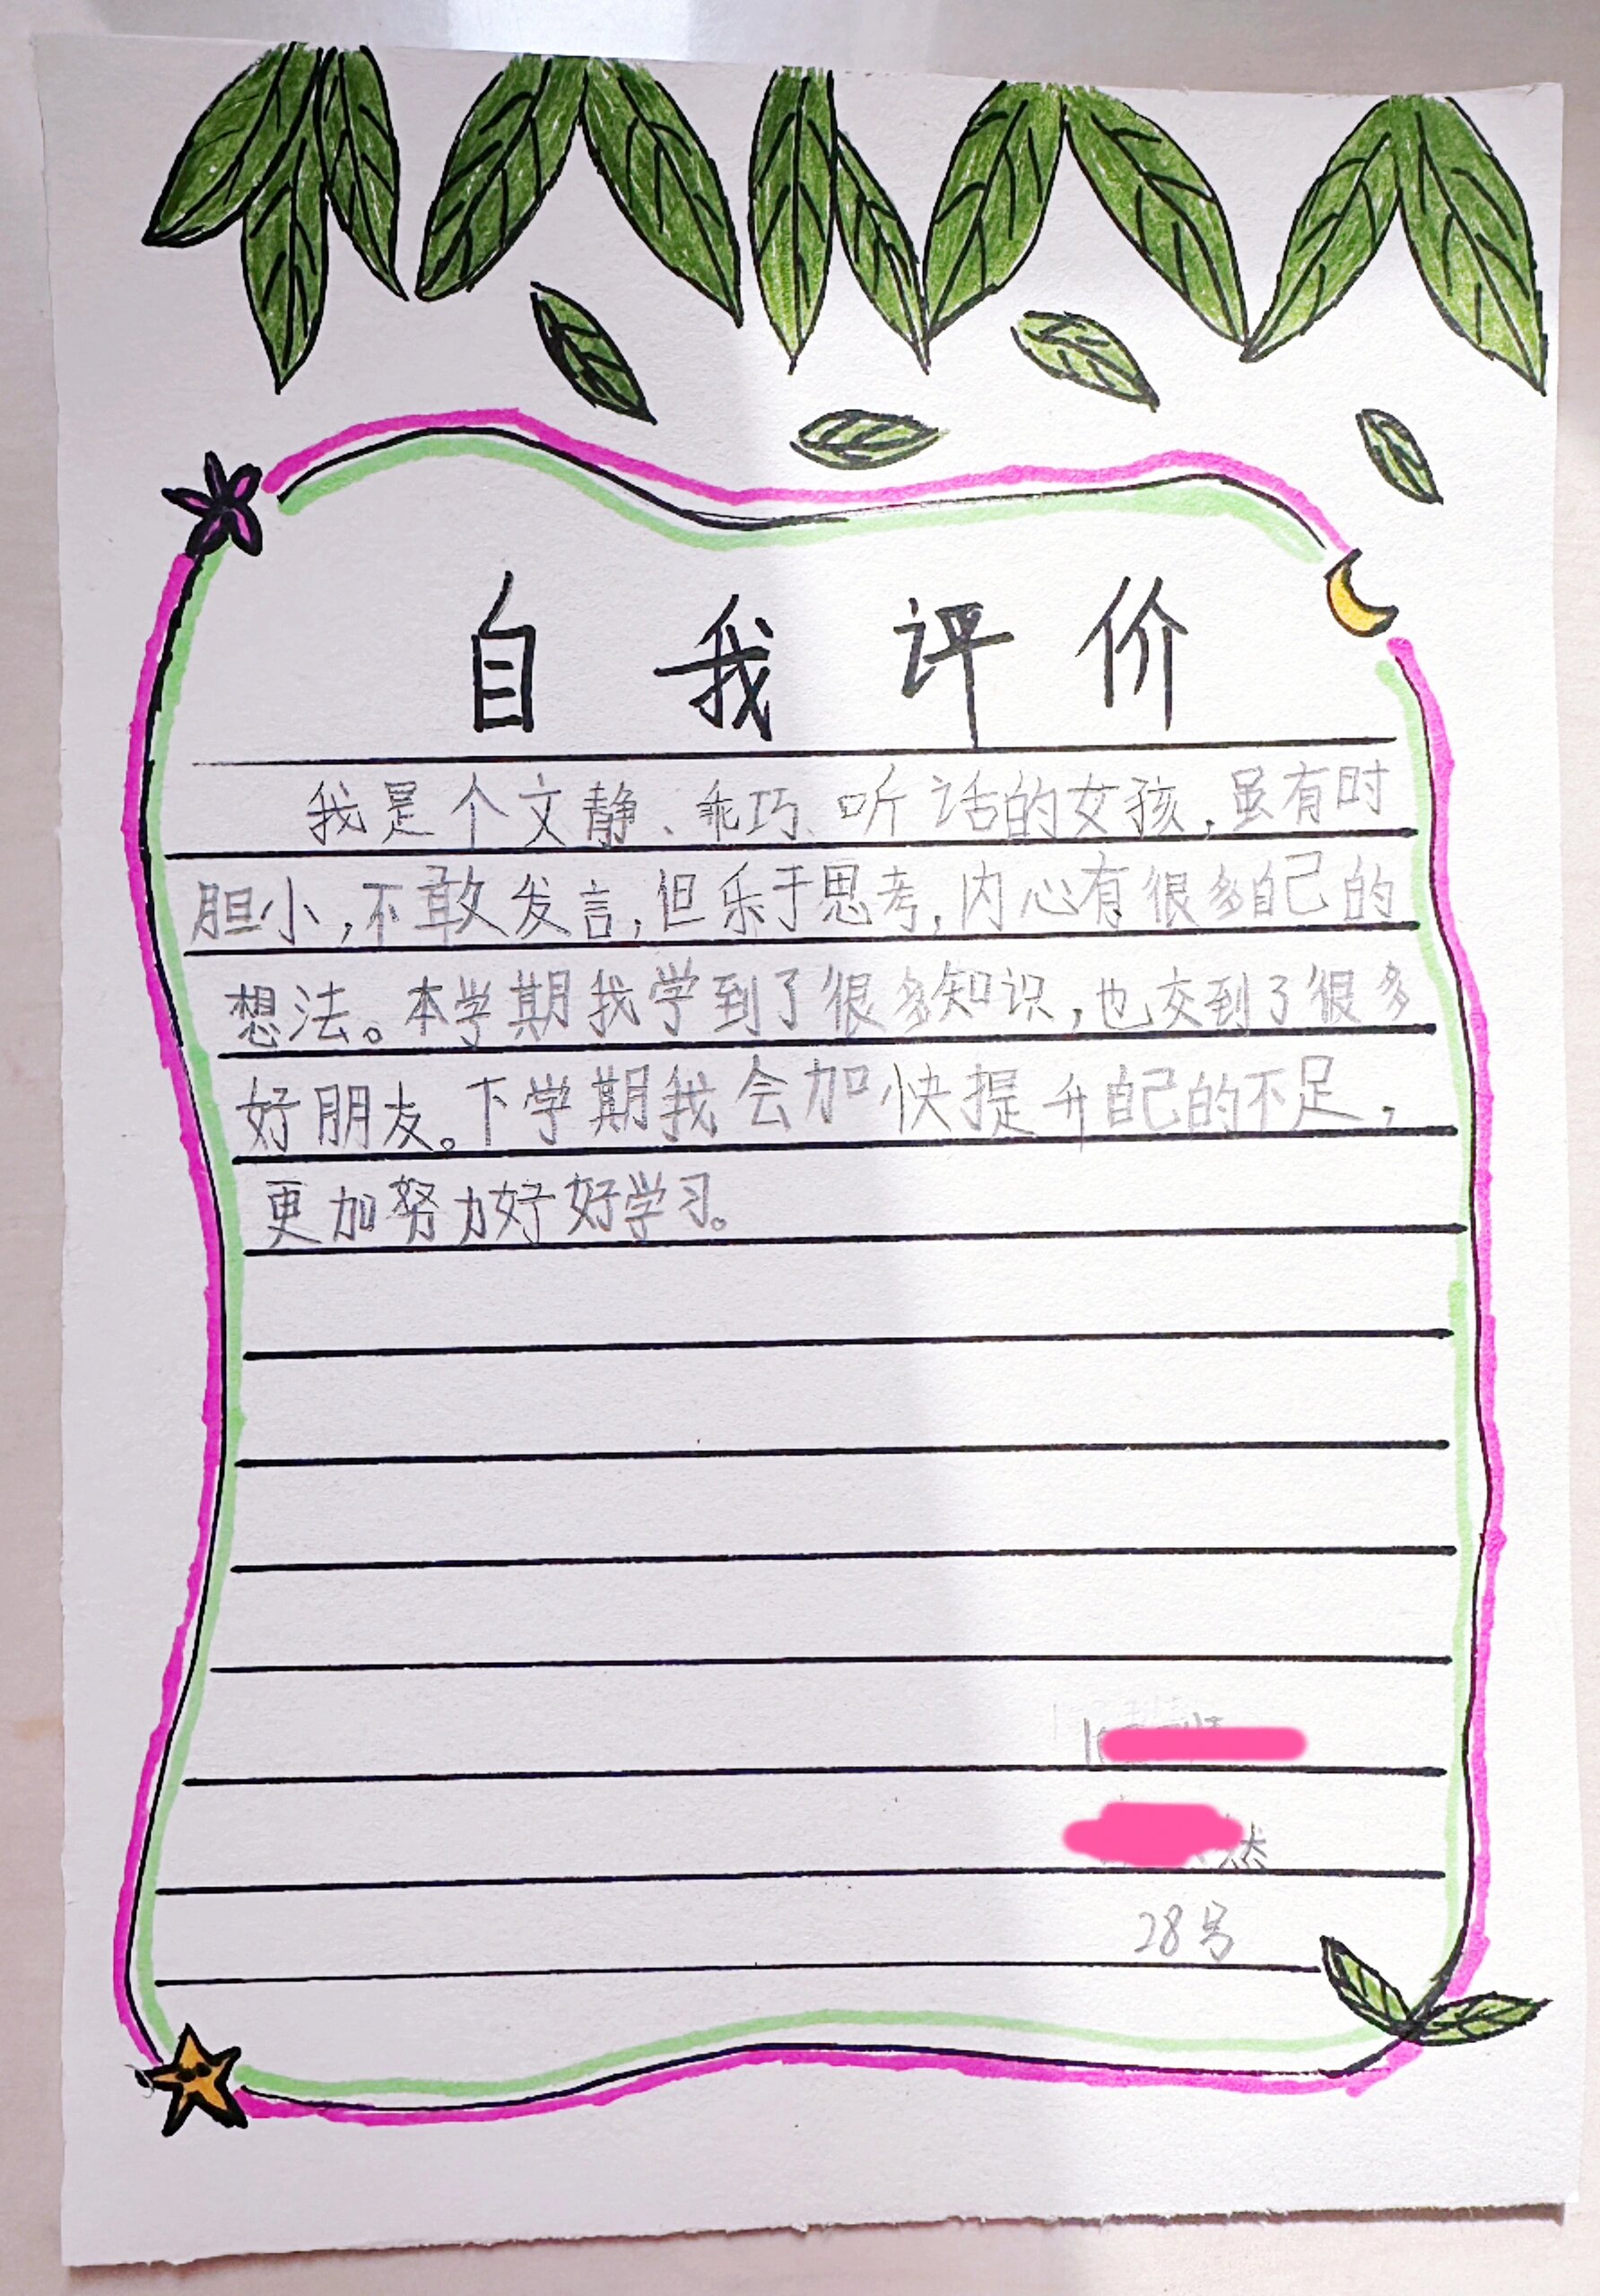 自我评价
我是个文静、乖巧、听话的女孩，虽有时
胆小，不敢发言，但乐于思考，内心有很多自己的
想法。本学期我学到了很多知识，也交到了很多
好朋友。下学期我会加快提升自己的不足，
更加努力好好学习。
28号